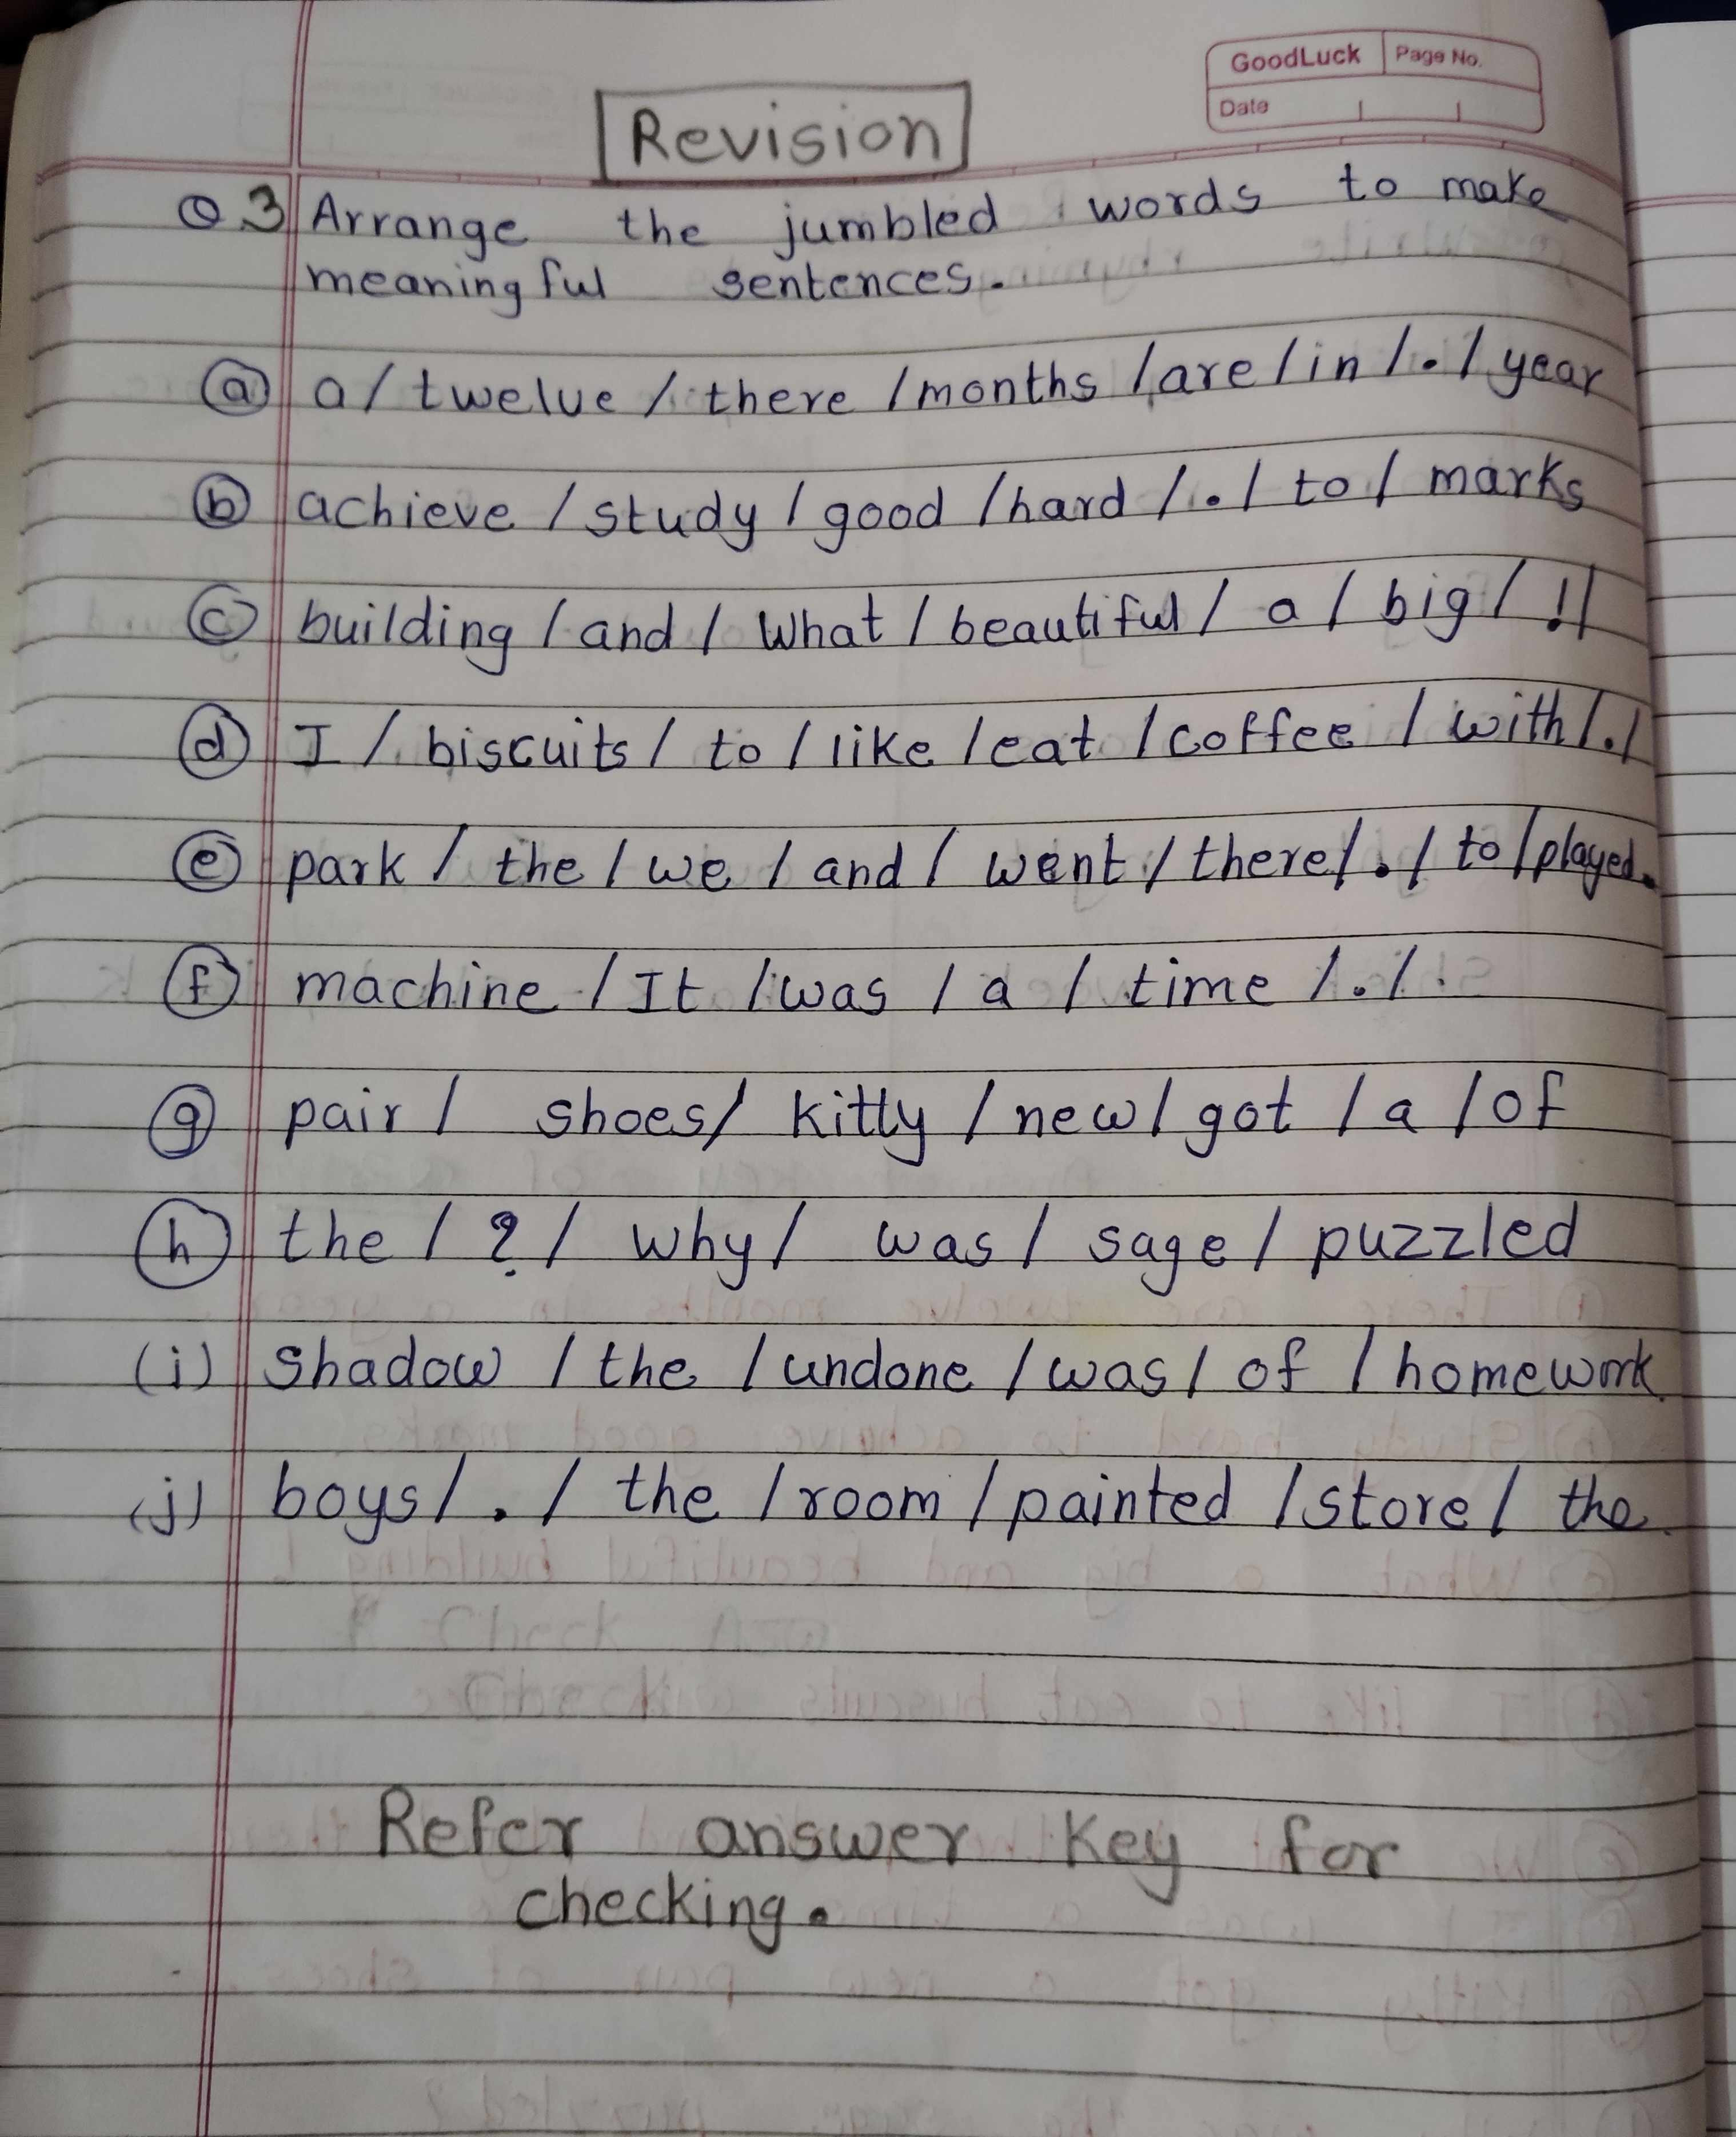 GoodLuck Page No.
Date
Revision
Q3 Arrange the jumbled words to make
meaningful sentences.
(a) a / twelve / there / months / are / in / . / year
(b) achieve / study / good / hard / . / to / marks
(c) building / and / What / beautiful / a / big / ! /
(d) I / biscuits / to / like / eat / coffee / with / . /
(e) park / the / we / and / went / there / . / to / played.
(f) machine / It / was / a / time / . / .
(g) pair / shoes / kitty / new / got / a / of
(h) the / ? / why / was / sage / puzzled
(i) shadow / the / undone / was / of / homework.
(j) boys / . / the / room / painted / store / the.
Refer answer key for
checking.